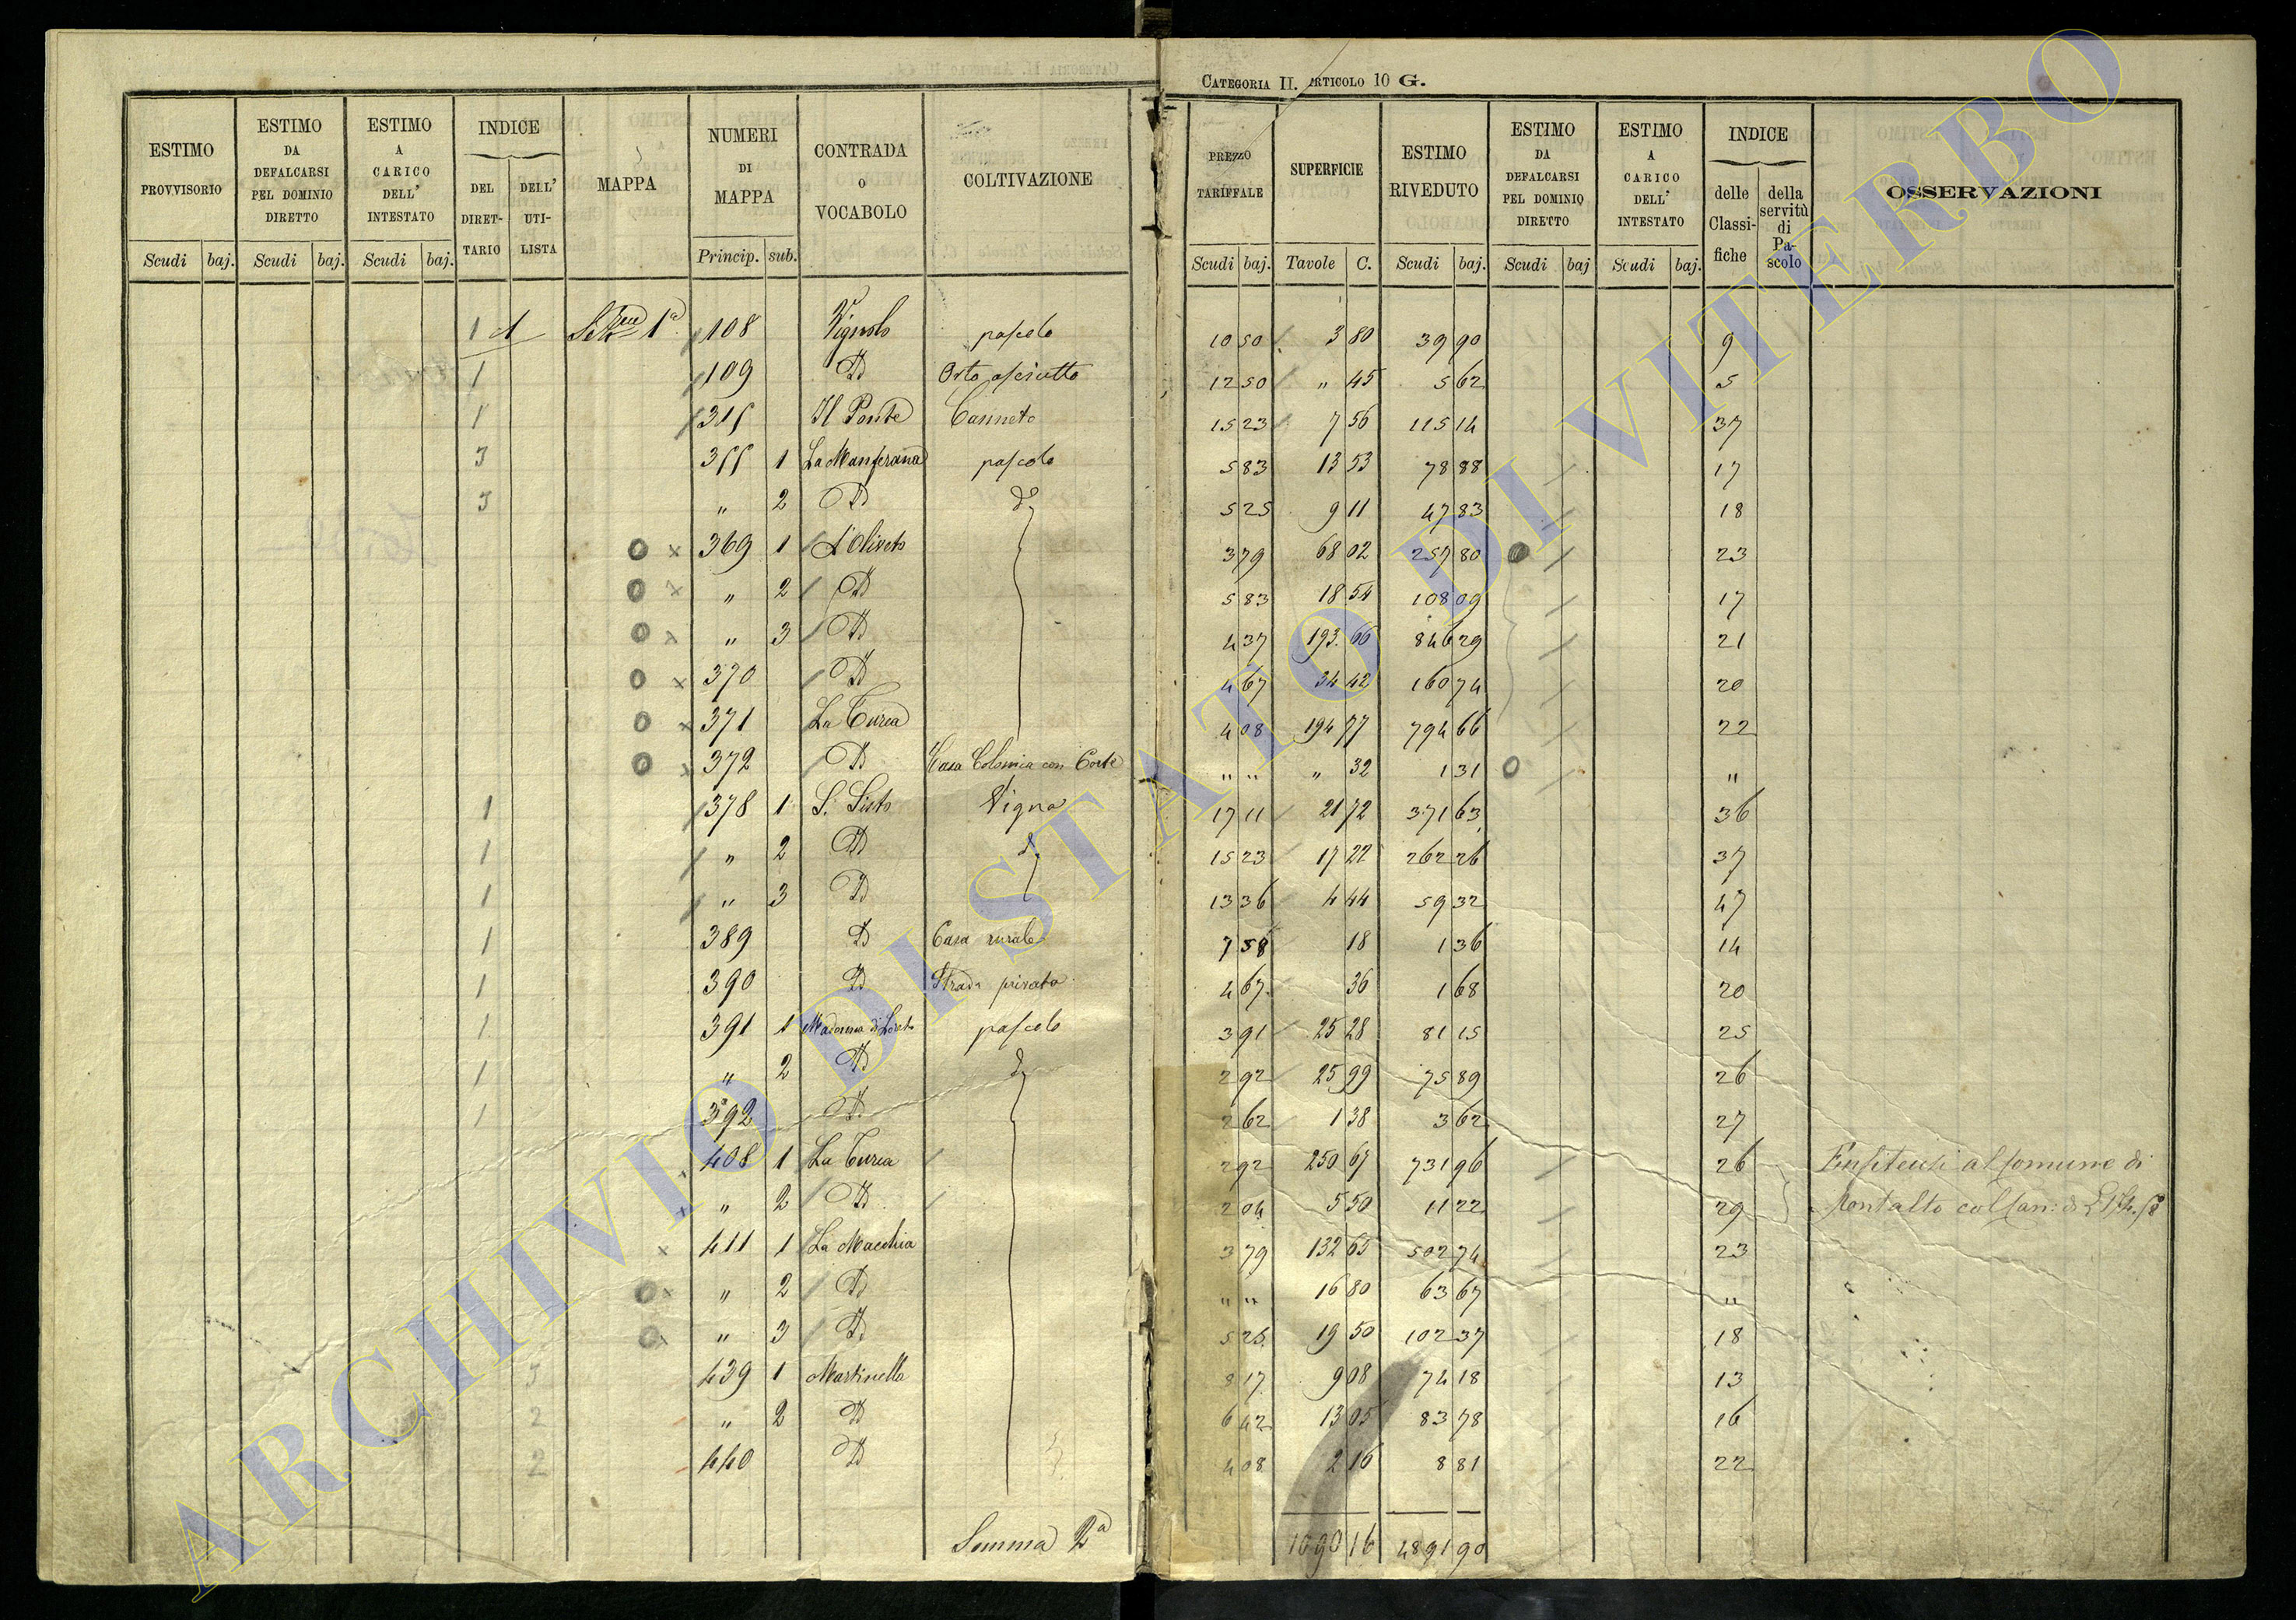 CATEGORIA II. ARTICOLO 10 G.
ESTIMO PROVVISORIO | ESTIMO DA DEFALCARSI PEL DOMINIO DIRETTO | ESTIMO A CARICO DELL' INTESTATO | INDICE DEL DIRETTARIO | DELL' UTILISTA | MAPPA | NUMERI DI MAPPA | CONTRADA O VOCABOLO | COLTIVAZIONE | PREZZO TARIFFALE | SUPERFICIE | ESTIMO RIVEDUTO | ESTIMO DA DEFALCARSI PEL DOMINIO DIRETTO | ESTIMO A CARICO DELL' INTESTATO | INDICE delle Classifiche | della servitù di Pascolo | OSSERVAZIONI
Scudi baj. Scudi baj. Scudi baj. Princip. sub. Scudi baj. Tavole C. Scudi baj. Scudi baj Scudi baj.
1 1 1ª 108 Vignolo pascolo 10 50 3 80 39 90 9
1 109 D Orto asciutto 12 50 " 45 5 62 5
1 315 Il Ponte Canneto 15 23 7 56 115 14 37
3 355 1 pascolo 5 83 13 53 78 88 17
3 " 2 D d 5 25 9 11 47 83 18
O x 369 1 L'Oliveto 3 79 68 02 257 80 O 23
O x " 2 D 5 83 18 54 108 09 17
O x " 3 D 4 37 193 66 846 29 21
O x 370 D 4 67 34 42 160 74 20
O x 371 La Turca 4 08 194 77 794 66 22
O x 372 D Casa Colonica con Corte " " " 32 1 31 O "
1 378 1 S. Sisto Vigna 17 11 21 72 371 63 36
1 " 2 D d 15 23 17 22 262 26 37
1 " 3 D 13 36 4 44 59 32 47
1 389 D Casa rurale 7 58 18 1 36 14
1 390 D Strada privata 4 67 36 1 68 20
1 391 1 Madonna di Loreto pascolo 3 91 25 28 81 15 25
1 " 2 D d 2 92 25 99 75 89 26
1 392 D 2 62 1 38 3 62 27
408 1 La Turca 2 92 250 67 731 96 26 Enfiteusi al Comune di
" 2 D 2 04 5 50 11 22 29 Montalto col
x 411 1 La Macchia 3 79 132 65 502 74 23
O x " 2 D " " 16 80 63 67 "
O x " 3 D 5 25 19 50 102 37 18
3 439 1 Martinella 8 17 9 08 74 18 13
2 " 2 D 6 42 13 05 83 78 16
2 440 D 4 08 2 16 8 81 22
Somma 2ª 1090 16 4891 90
ARCHIVIO DI STATO DI VITERBO